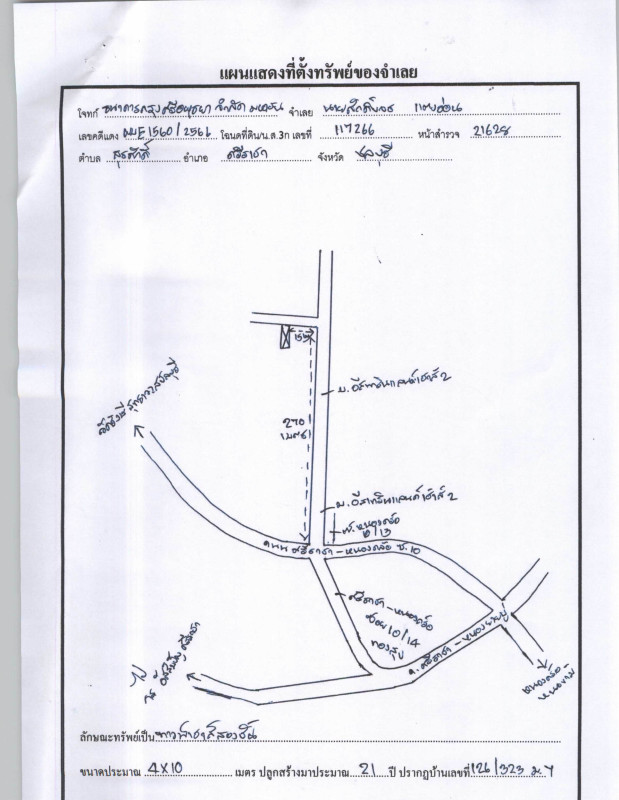 แผนแสดงที่ตั้งทรัพย์ของจำเลย
โจทก์ ธนาคารกรุงศรีอยุธยา จำกัด มหาชน จำเลย
เลขคดีแดง ผบE1560/2561 โฉนดที่ดิน/น.ส.3ก เลขที่ 117266 หน้าสำรวจ 21628
ตำบล สุรศักดิ์ อำเภอ ศรีราชา จังหวัด ชลบุรี
15
ม.อีสเทิร์นแลนด์เฮ้าส์ 2
270
เมตร
ม.อีสเทิร์นแลนด์เฮ้าส์ 2
ซ.หนองค้อ
10/13
ถนน ศรีราชา-หนองค้อ ซ.10
ศรีราชา-หนองค้อ
ซอย 10/14
ถ.ศรีราชา-หนองยายบู่
ลักษณะทรัพย์เป็น ทาวน์เฮ้าส์สองชั้น
ขนาดประมาณ 4x10 เมตร ปลูกสร้างมาประมาณ 21 ปี ปรากฏบ้านเลขที่ 126/323 ม.7